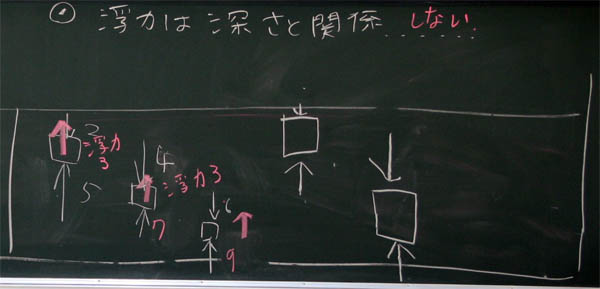 浮力は深さと関係しない
2
浮力
3
5
4
浮力3
7
6
9